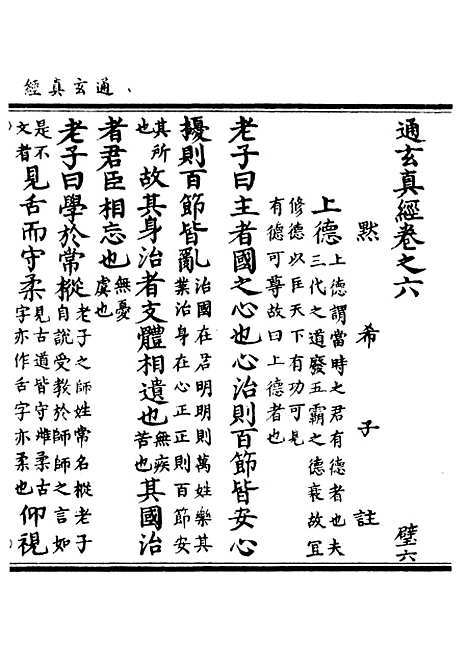 通玄真經
通玄真經卷之六 璧六
默希子註
上德上德謂當時之君有德者也夫三代之道廢五霸之德衰故宜
修德以臣天下有功可見有德可尊故曰上德者也
老子曰主者國之心也心治則百節皆安心
擾則百節皆亂治國在君明明則萬姓樂其業治身在心正正則百節安
其所也故其身治者支體相遺也無疾苦也其國治
者君臣相忘也無憂虞也
老子曰學於常樅老子之師姓常名樅老子自說受教於師師之言如
是不文者見舌而守柔見古道皆守雌柔古字亦作舌字亦柔也仰視